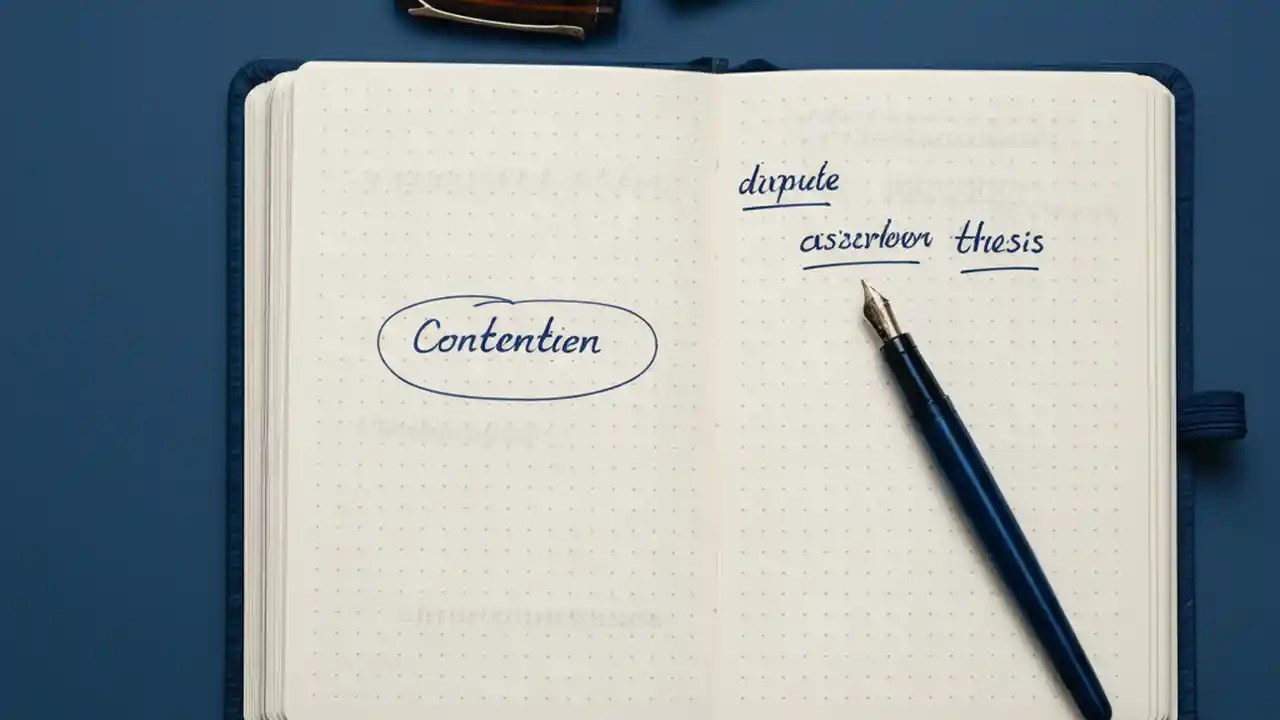 Contention
dispute
assertion thesis